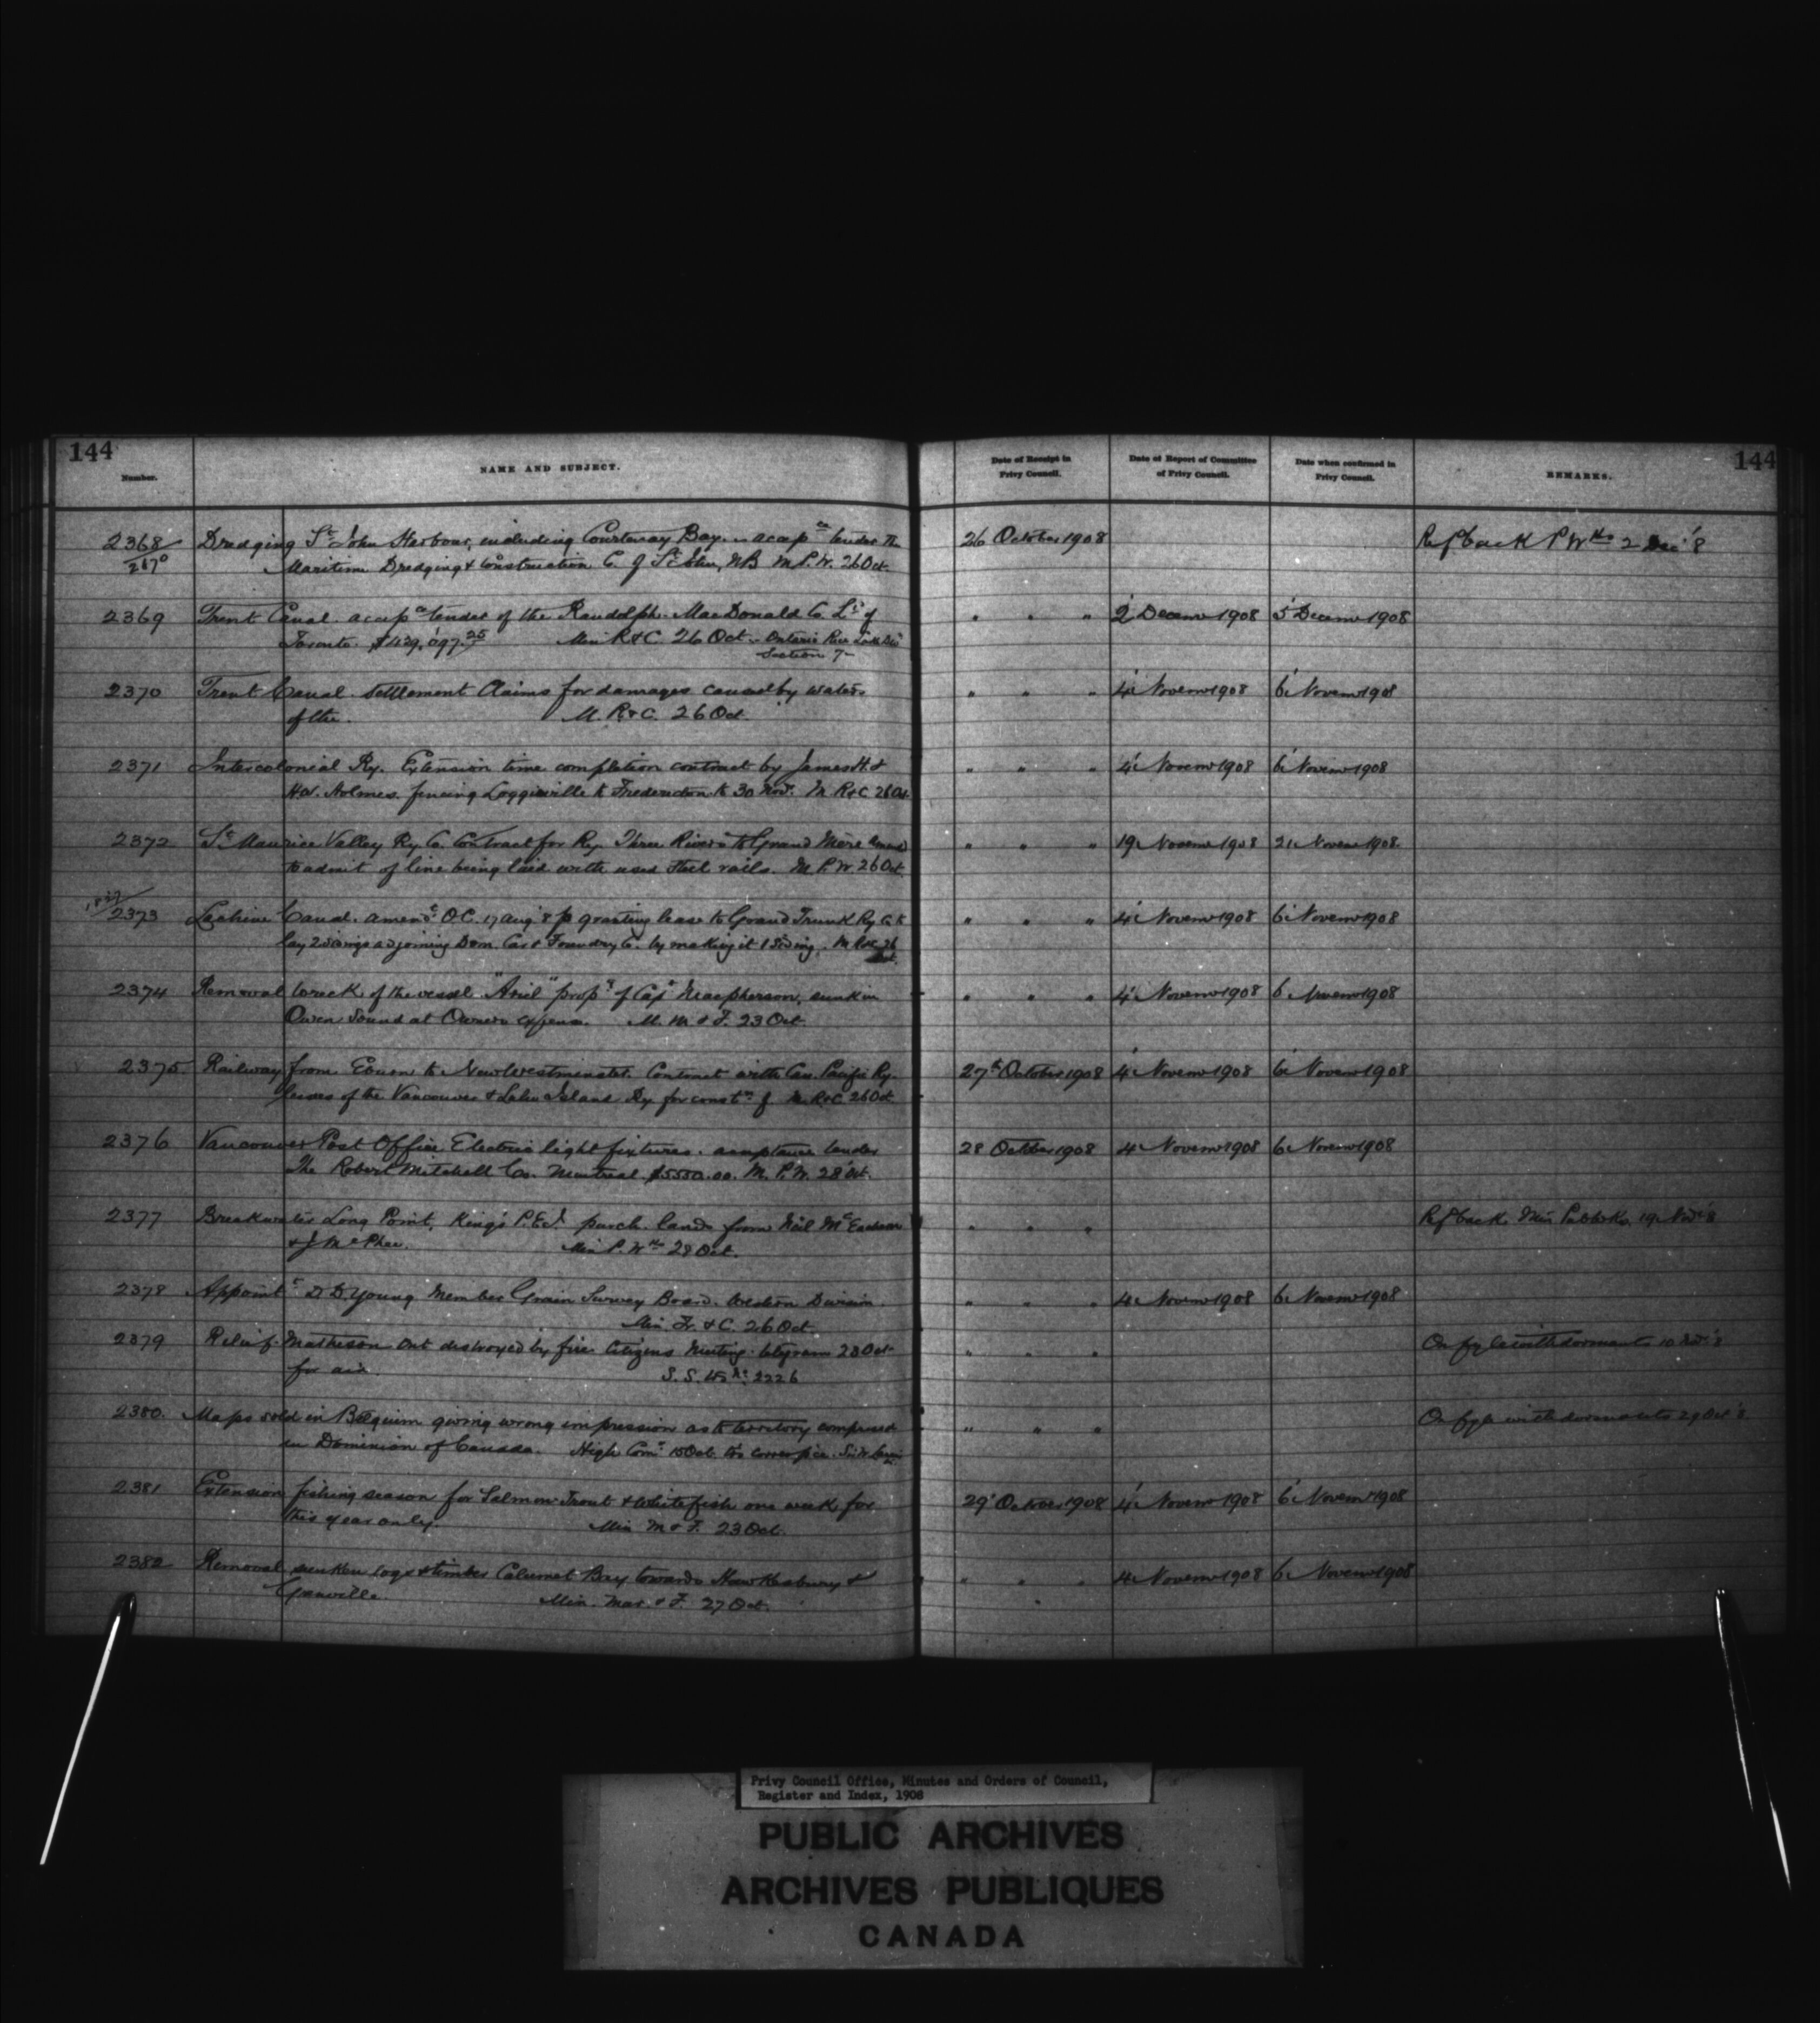 144
144
Number.
NAME AND SUBJECT.
Date of Receipt in Privy Council.
Date of Report of Committee of Privy Council.
Date when confirmed in Privy Council.
REMARKS.
2368 Dredging St John Harbour, including Courtenay Bay - accep ce tender The 26 October 1908 Ref back P Wks 2 Dec '8
Maritime Dredging & Construction Co of St John, NB M P.W. 26 Oct.
2369 Trent Canal accep ce tender of the Randolph MacDonald Co Ld of " " " 2 Decemr 1908 5 Decemr 1908
Toronto. $429,097.25 Min R&C. 26 Oct - Ontario Rice Lake Div
Section 7-
2370 Trent Canal. Settlement Claims for damages caused by waters " " " 4 Novemr 1908 6 Novemr 1908
of the. M. R&C. 26 Oct
2371 Intercolonial Ry. Extension time completion contract by James H. & " " " 4 Novemr 1908 6 Novemr 1908
Holmes fencing Loggieville to Fredericton to 30 Nov. M R&C 26 Oct
2372 St Maurice Valley Ry Co. Contract for Ry. Three Rivers to Grand Mère amend " " " 19 Novemr 1908 21 Novemr 1908.
to admit of line being laid with used steel rails. M P.W 26 Oct
2373 Lachine Canal. amendt OC. 17 Aug '8 granting lease to Grand Trunk Ry Co to " " " 4 Novemr 1908 6 Novemr 1908
lay 2 sidings adjoining Dom. Car & Foundry Co. by making it 1 siding. M R&C 26
Oct.
2374 Removal wreck of the vessel "Ariel" propy of Capt Macpherson, sunk in " " " 4 Novemr 1908 6 Novemr 1908
Owen Sound at Owners expense. M. M & F. 23 Oct
2375 Railway from Eburn to New Westminster. Contract with Can. Pacific Ry. 27th October 1908 4 Novemr 1908 6 Novemr 1908
lessees of the Vancouver & Lulu Island Ry for constn of M R&C 26 Oct
2376 Vancouver Post Office Electric light fixtures. acceptance tender 28 October 1908 4 Novemr 1908 6 Novemr 1908
The Robert Mitchell Co. Montreal. $5550.00. M. P.W. 28 Oct.
2377 Breakwater Long Point, Kings P.E.I. purch. lands from Neil McEachern " " " Ref back Min Pub Wks. 19 Nov '8
& J McPhee. Min P. Wks 28 Oct.
2378 Appointt D D. Young Member Grain Survey Board. Western Division. " " " 4 Novemr 1908 6 Novemr 1908
Min Tr. & C. 26 Oct
2379 Relief. Matheson Ont destroyed by fire Citizens Meeting telegram 23 Oct " " "
for aid. S. S. 2226
2380. Maps sold in Belgium giving wrong impression as to territory comprised " " "
in Dominion of Canada. High Comr 15 Oct
2381 Extension fishing season for Salmon Trout & Whitefish one week for 29 October 1908 4 Novemr 1908 6 Novemr 1908
this year only. Min M & F. 23 Oct.
2382 Removal sunken logs & timber Calumet Bay towards Hawkesbury & " " " 4 Novemr 1908 6 Novemr 1908
Grenville. Min. Mar. & F. 27 Oct.
Privy Council Office, Minutes and Orders of Council,
Register and Index, 1908
PUBLIC ARCHIVES
ARCHIVES PUBLIQUES
CANADA